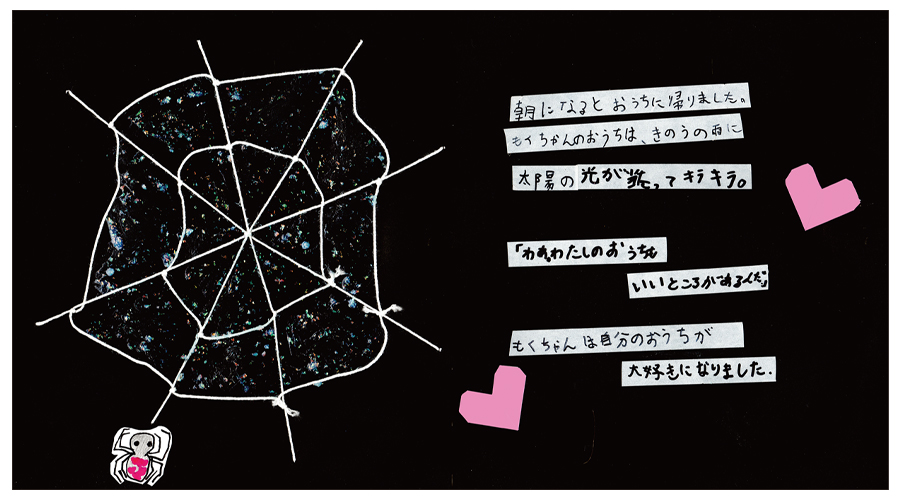 朝になるとおうちに帰りました。
もくちゃんのおうちは、きのうの雨に
太陽の光が当ってキラキラ。
「わあ、わたしのおうちも
いいところがあるんだ」
もくちゃんは自分のおうちが
大好きになりました.